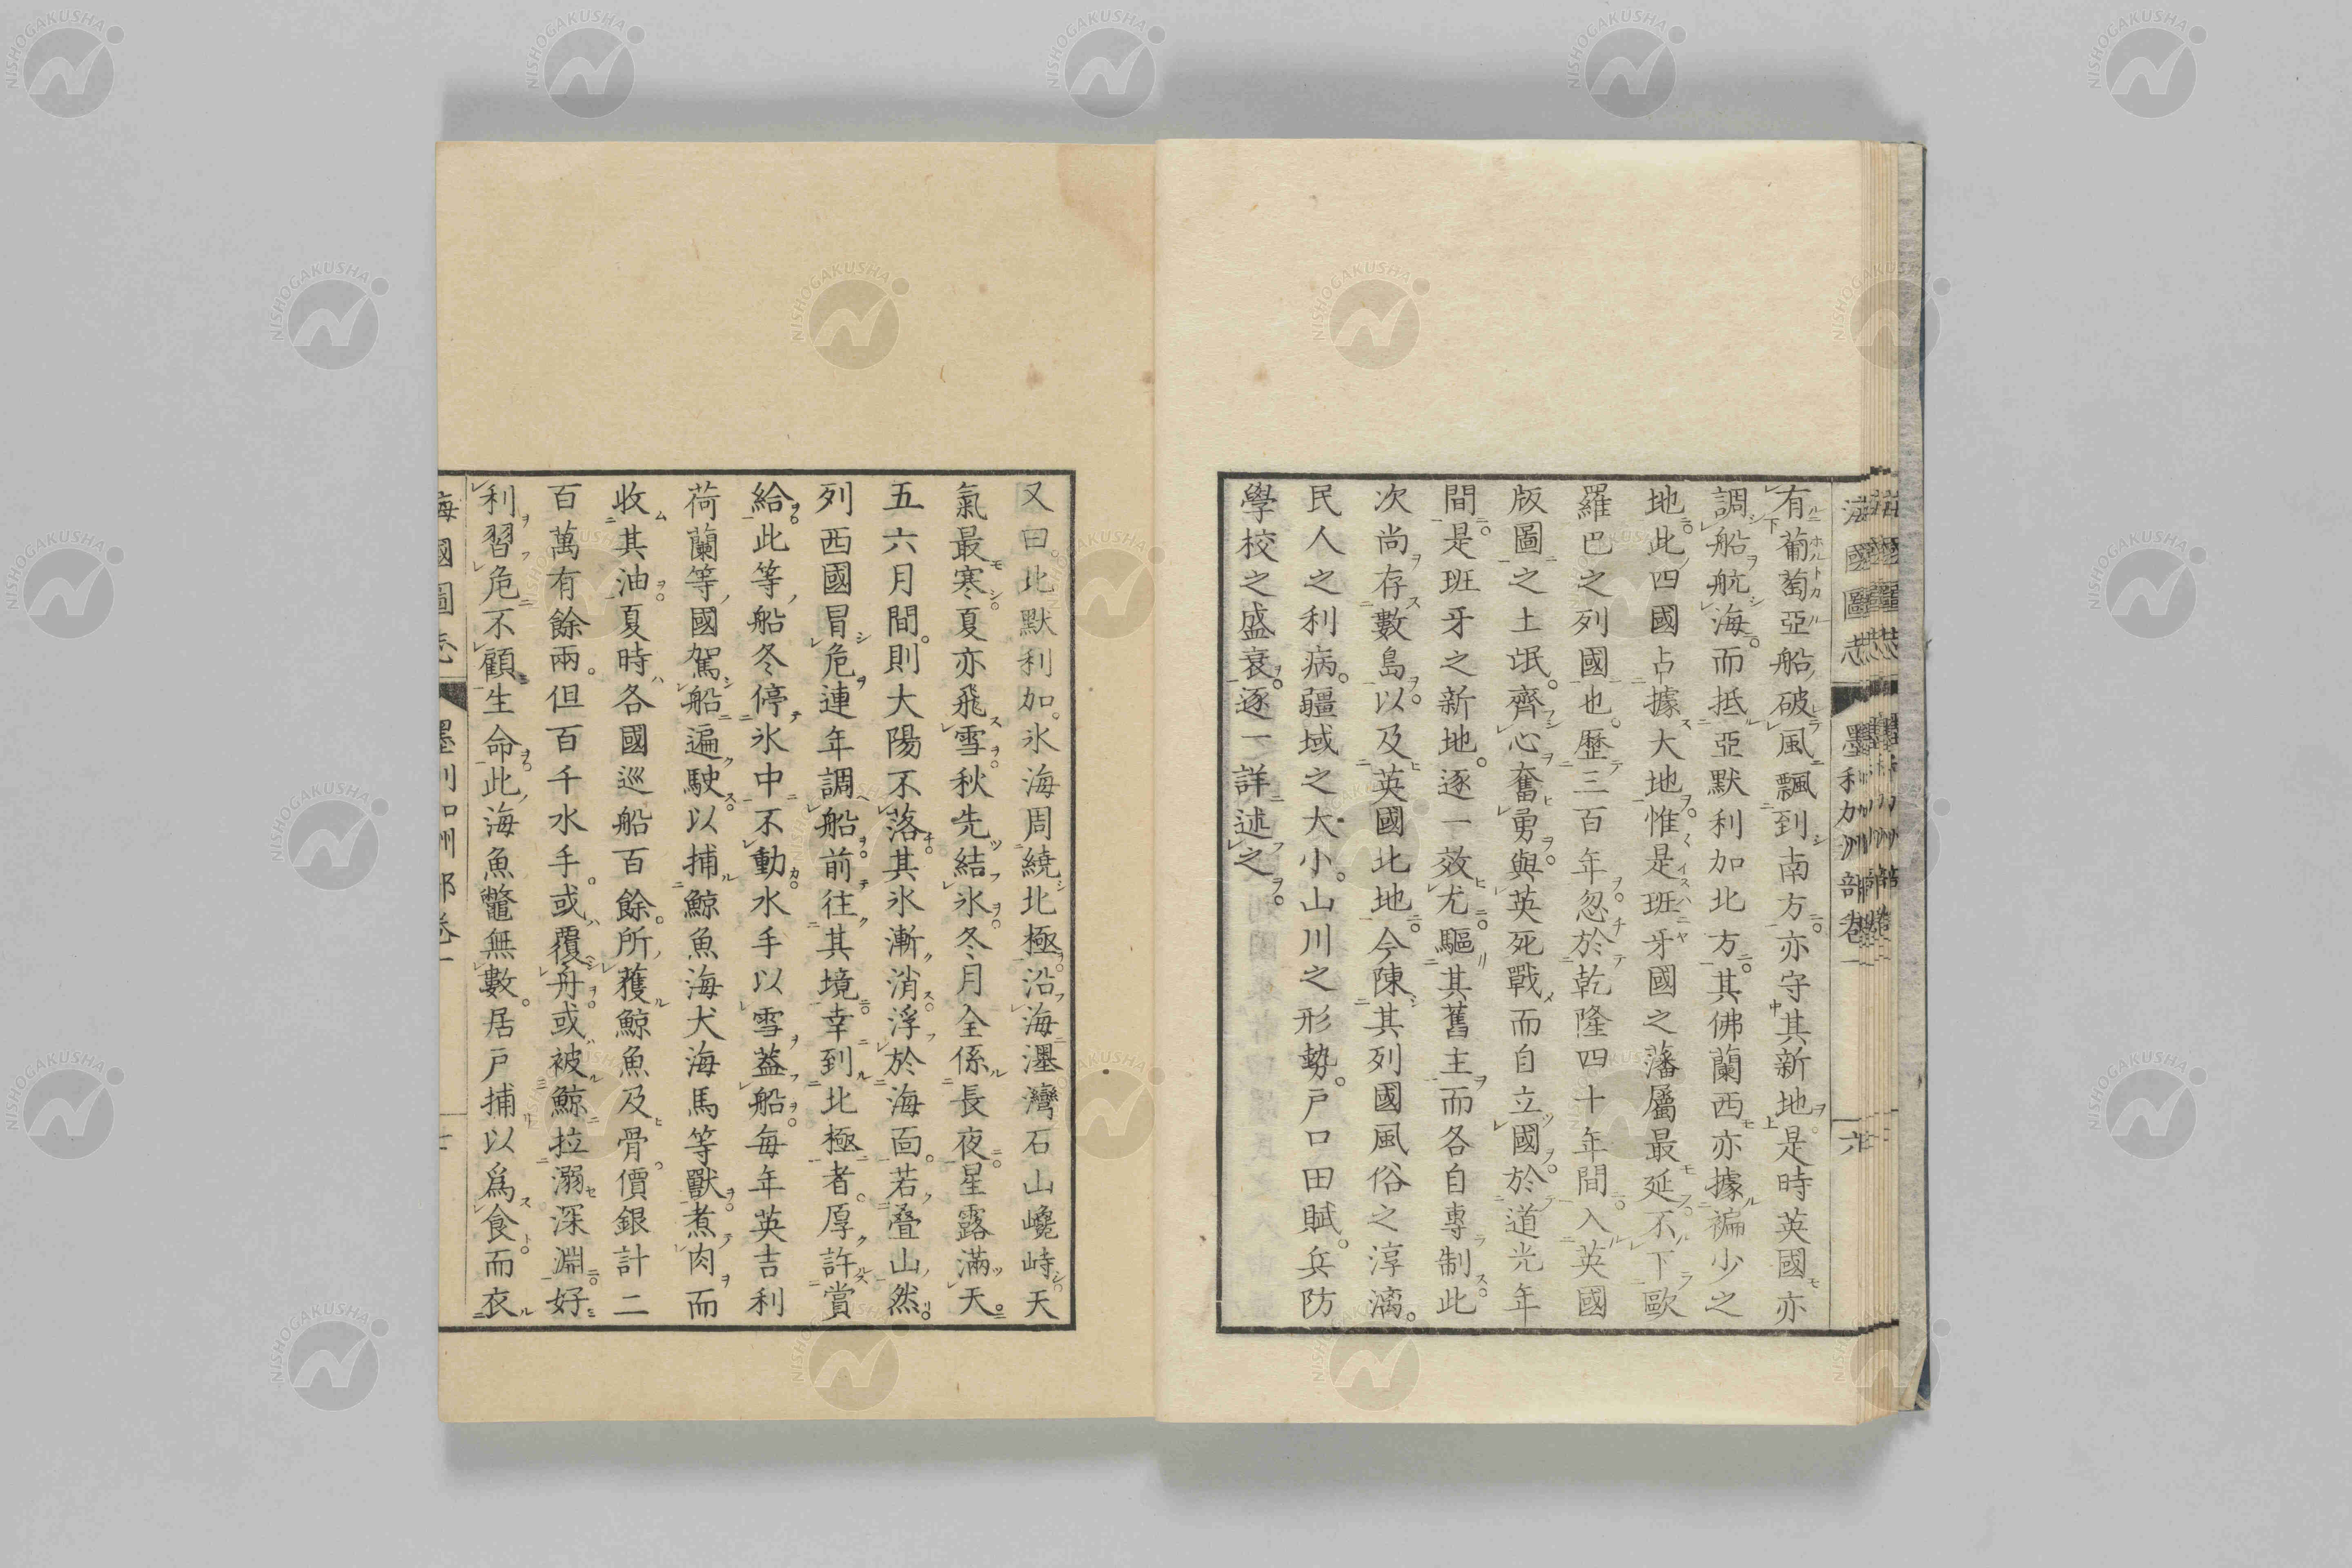 海國圖志 墨利加洲部卷一 六
有葡萄亞船破風飄到南方。亦守其新地。是時英國亦
調船航海。而抵亞默利加北方。其佛蘭西亦據褊少之
地。此四國占據大地。惟是班牙國之藩屬最延。不下歐
羅巴之列國也。歷三百年。忽於乾隆四十年間。入英國
版圖之土氓。齊心奮勇。與英死戰而自立國。於道光年
間。是班牙之新地。逐一效尤。驅其舊主而各自專制。此
次尚存數島。以及英國北地。今陳其列國風俗之淳漓。
民人之利病。疆域之大小。山川之形勢。戶口田賦。兵防
學校之盛衰。逐一詳述之。
又曰。北默利加。氷海周繞北極。沿海㙻灣石山巉峙。天
氣最寒。夏亦飛雪。秋先結氷。冬月全係長夜。星露滿天。
五六月間。則大陽不落。其氷漸消。浮於海面。若疊山然。
列西國冒危連年調船。前往其境。幸到北極者。厚許賞
給。此等船冬停氷中不動。水手以雪蓋船。每年英吉利
荷蘭等國駕船遍駛。以捕鯨魚海犬海馬等獸。煮肉而
收其油。夏時各國巡船百餘。所獲鯨魚及骨。價銀計二
百萬有餘兩。但百千水手。或覆舟。或被鯨拉溺深淵。好
利習危。不顧生命。此海魚鼈無數。居戶捕以爲食。而衣
海國圖志 墨利加洲部卷一